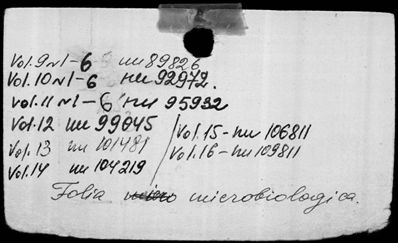 Vol. 9 №1-6 ин 89826
Vol. 10 №1-6 ин 92972.
Vol. 11 №1-6 ин 95932
Vol. 12 ин 99045
Vol. 13 ин 101481
Vol. 14 ин 104219
Vol. 15 - ин 106811
Vol. 16 - ин 109811
Folia microbiologica.